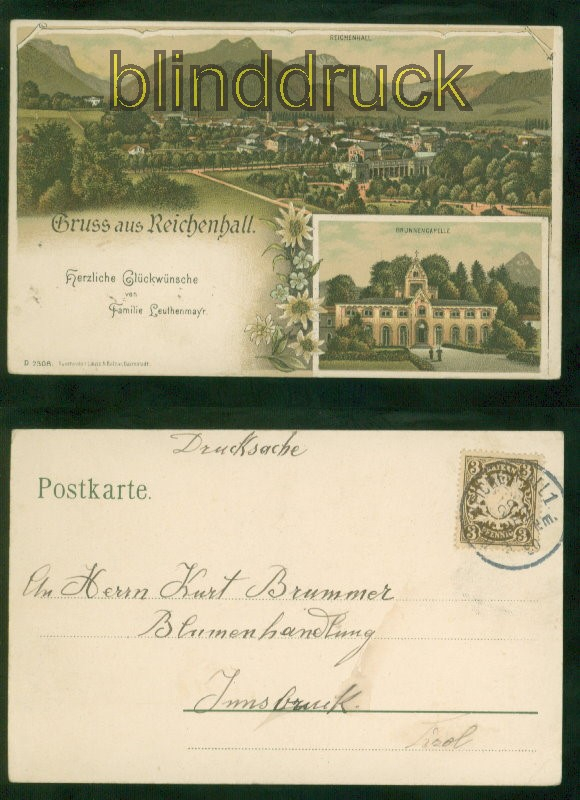 REICHENHALL
blinddruck
Gruss aus Reichenhall.
BRUNNENCAPELLE
Herzliche Glückwünsche
von
Familie Leuthenmay'r.
D 2508.
Drucksache
Postkarte.
3 BAYERN 3
3 PFENNIG 3
An Herrn Kurt Brummer
Blumenhandlung
Innsbruck.
Tirol